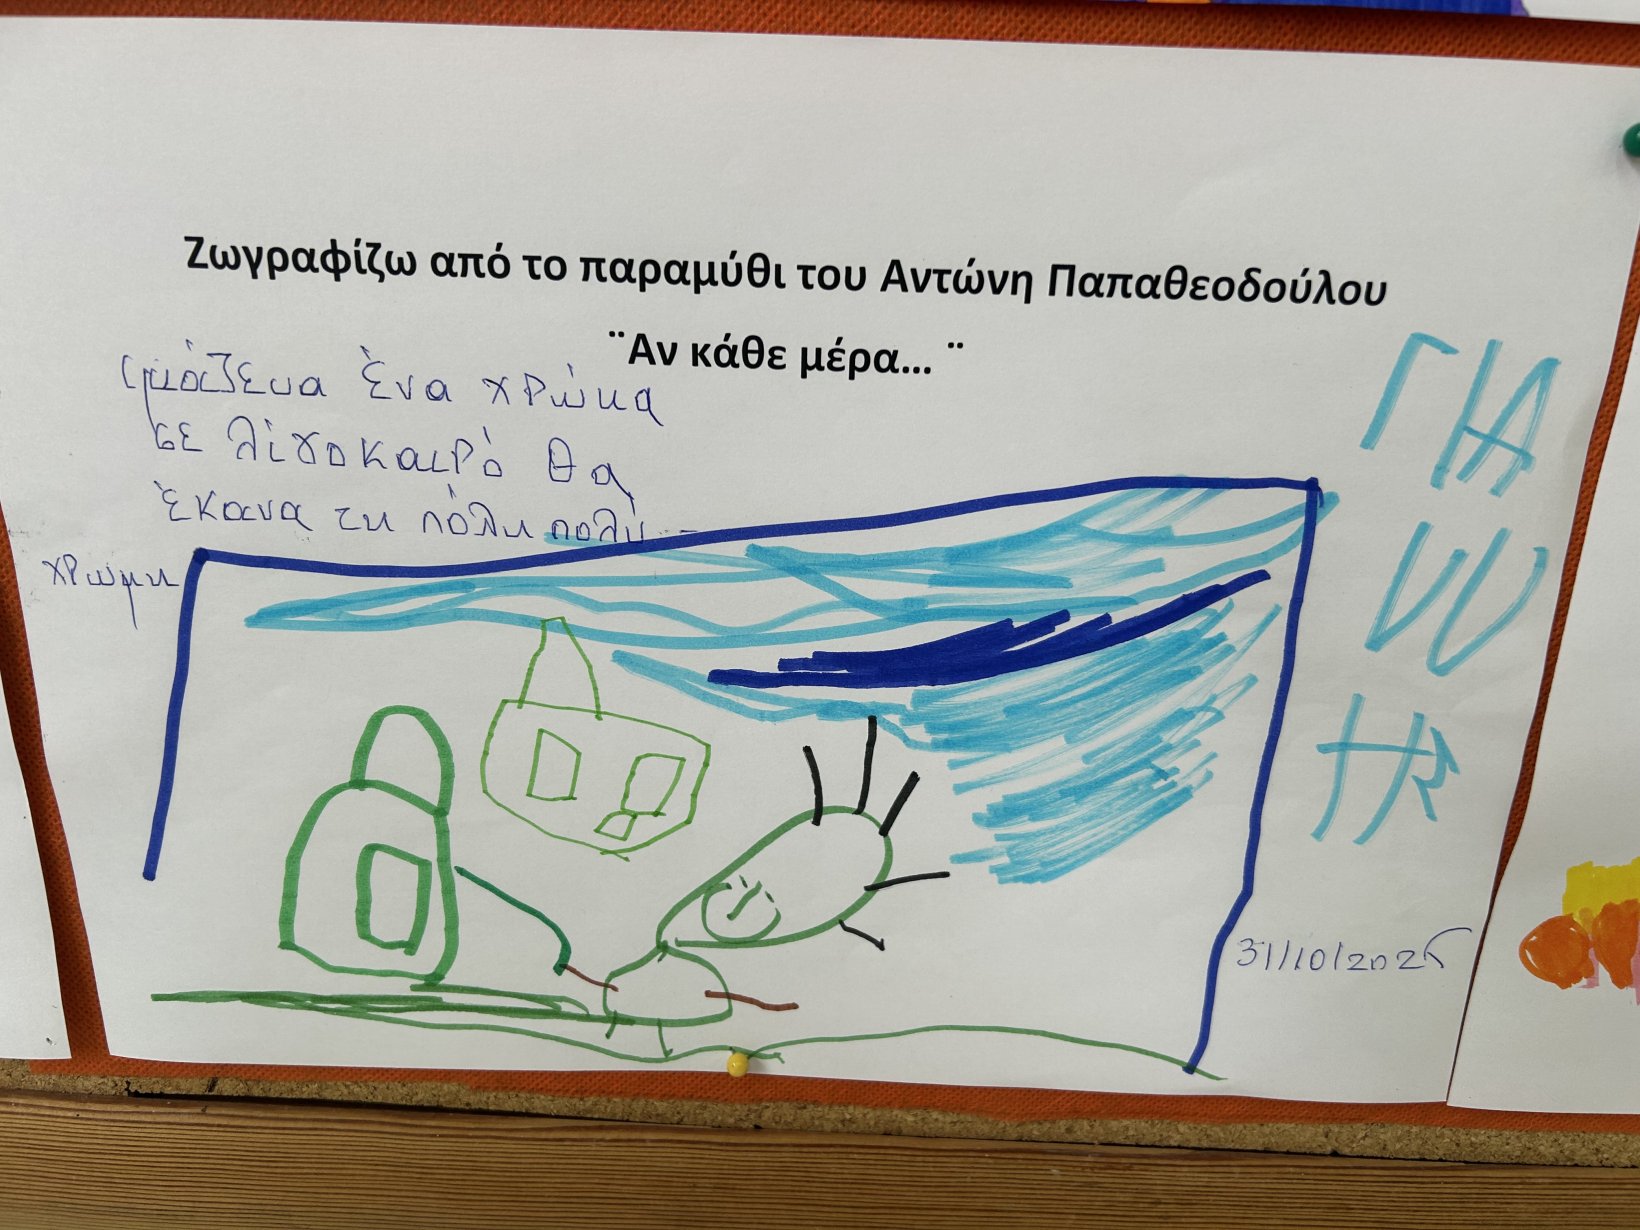 Ζωγραφίζω από το παραμύθι του Αντώνη Παπαθεοδούλου
¨Αν κάθε μέρα... ¨
μάζευα ένα χρώμα
σε λίγο καιρό θα
έκανα τη πόλη πολύ -
χρωμη
ΓΙΑ
ΝΝ
Η
31/10/2025